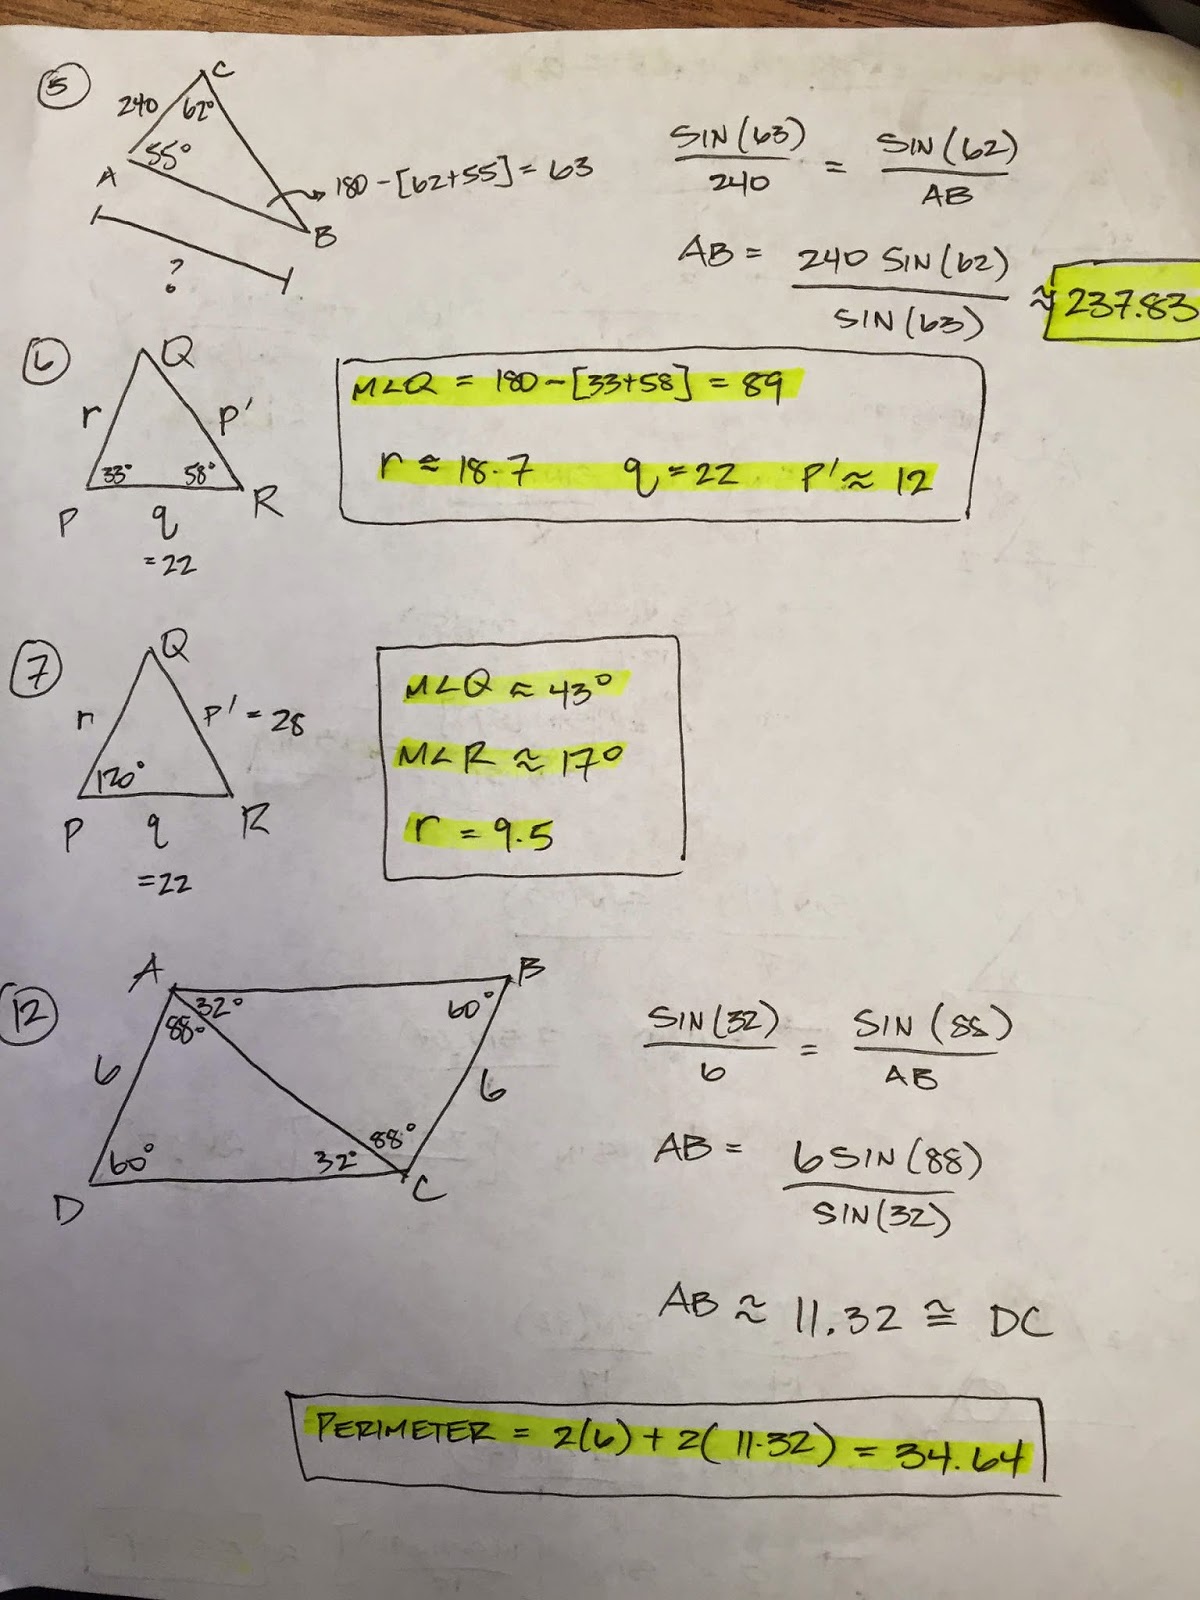 5
C
240 62°
55°
A
180-[62+55]=63
B
?
SIN(63)/240 = SIN(62)/AB
AB = 240 SIN(62)/SIN(63) ≈ 237.83
6
Q
r p'
33° 58°
P q R
=22
M∠Q = 180-[33+58] = 89
r ≈ 18.7 q=22 p' ≈ 12
7
Q
r p' = 28
120°
P q R
=22
M∠Q ≈ 43°
M∠R ≈ 17°
r = 9.5
12
A B
32° 60°
88°
6 6
60° 32° 88°
D C
SIN(32)/6 = SIN(88)/AB
AB = 6SIN(88)/SIN(32)
AB ≈ 11.32 ≅ DC
PERIMETER = 2(6) + 2(11.32) = 34.64